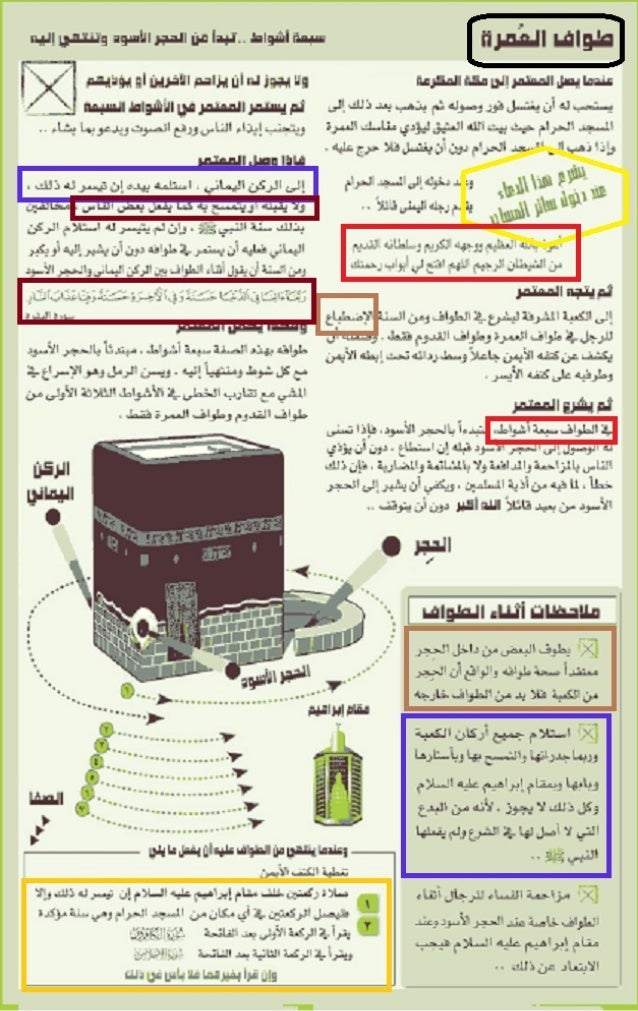 طواف العُمرة
سبعة أشواط .. تبدأ من الحجر الأسود وتنتهي إليه
عندما يصل المعتمر إلى مكة المكرمة
يستحب له أن يغتسل فور وصوله ثم يذهب بعد ذلك إلى
المسجد الحرام حيث بيت الله العتيق ليؤدي مناسك العمرة
وإذا ذهب إلى المسجد الحرام دون أن يغتسل فلا حرج عليه .
وعند دخوله إلى المسجد الحرام
يقدم رجله اليمنى قائلاً ..
يشرع هذا الدعاء
عند دخول سائر المساجد
أعوذ بالله العظيم ووجهه الكريم وسلطانه القديم
من الشيطان الرجيم اللهم افتح لي أبواب رحمتك
ثم يتجه المعتمر
إلى الكعبة المشرفة ليشرع في الطواف ومن السنة الإضطباع
للرجل في طواف العمرة وطواف القدوم فقط . وصفته أن
يكشف عن كتفه الأيمن جاعلاً وسط ردائه تحت إبطه الأيمن
وطرفيه على كتفه الأيسر .
ثم يشرع المعتمر
في الطواف سبعة أشواط، مبتدءاً بالحجر الأسود، فإذا تسنى
له الوصول إلى الحجر الأسود قبله إن استطاع ، دون أن يؤذي
الناس بالمزاحمة والمدافعة ولا بالمشاتمة والمضاربة ، فإن ذلك
خطأ ، لما فيه من أذية المسلمين ، ويكفي أن يشير إلى الحجر
الأسود من بعيد قائلاً الله أكبر دون أن يتوقف ..
ولا يجوز له أن يزاحم الآخرين أو يؤذيهم
ثم يستمر المعتمر في الأشواط السبعة
ويتجنب إيذاء الناس ورفع الصوت ويدعو بما يشاء ..
فإذا وصل المعتمر
إلى الركن اليماني ، استلمه بيده إن تيسر له ذلك ،
ولا يقبله أو يتمسح به كما يفعل بعض الناس ، مخالفين
بذلك سنة النبي ﷺ ، وإن لم يتيسر له استلام الركن
اليماني فعليه أن يستمر في طوافه دون أن يشير إليه أو يكبر
ومن السنة أن يقول أثناء الطواف بين الركن اليماني والحجر الأسود
رَبَّنَا آتِنَا فِي الدُّنْيَا حَسَنَةً وَفِي الْآخِرَةِ حَسَنَةً وَقِنَا عَذَابَ النَّارِ
سورة البقرة
وهكذا يكمل المعتمر
طوافه بهذه الصفة سبعة أشواط ، مبتدئاً بالحجر الأسود
مع كل شوط ومنتهياً إليه . ويسن الرمل وهو الإسراع في
المشي مع تقارب الخطى في الأشواط الثلاثة الأولى من
طواف القدوم وطواف العمرة فقط .
الركن
اليماني
الحِجر
الحجر الأسود
مقام إبراهيم
الصفا
١
٢
٣
٤
٥
٦
٧
ملاحظات أثناء الطواف
يطوف البعض من داخل الحِجر
معتقداً صحة طوافه والواقع أن الحِجر
من الكعبة فلا بد من الطواف خارجه
استلام جميع أركان الكعبة
وربما جدرانها والتمسح بها وبأستارها
وبابها وبمقام إبراهيم عليه السلام
وكل ذلك لا يجوز ، لأنه من البدع
التي لا أصل لها في الشرع ولم يفعلها
النبي ﷺ ..
مزاحمة النساء للرجال أثناء
الطواف خاصة عند الحجر الأسود وعند
مقام إبراهيم عليه السلام فيجب
الابتعاد عن ذلك ..
وعندما ينتهي من الطواف عليه أن يفعل ما يلي
تغطية الكتف الأيمن
١ صلاة ركعتين خلف مقام إبراهيم عليه السلام إن تيسر له ذلك وإلا
٢ فليصل الركعتين في أي مكان من المسجد الحرام وهي سنة مؤكدة
يقرأ في الركعة الأولى بعد الفاتحة سورة الكافرون
ويقرأ في الركعة الثانية بعد الفاتحة سورة الإخلاص
وإن قرأ بغيرهما فلا بأس في ذلك